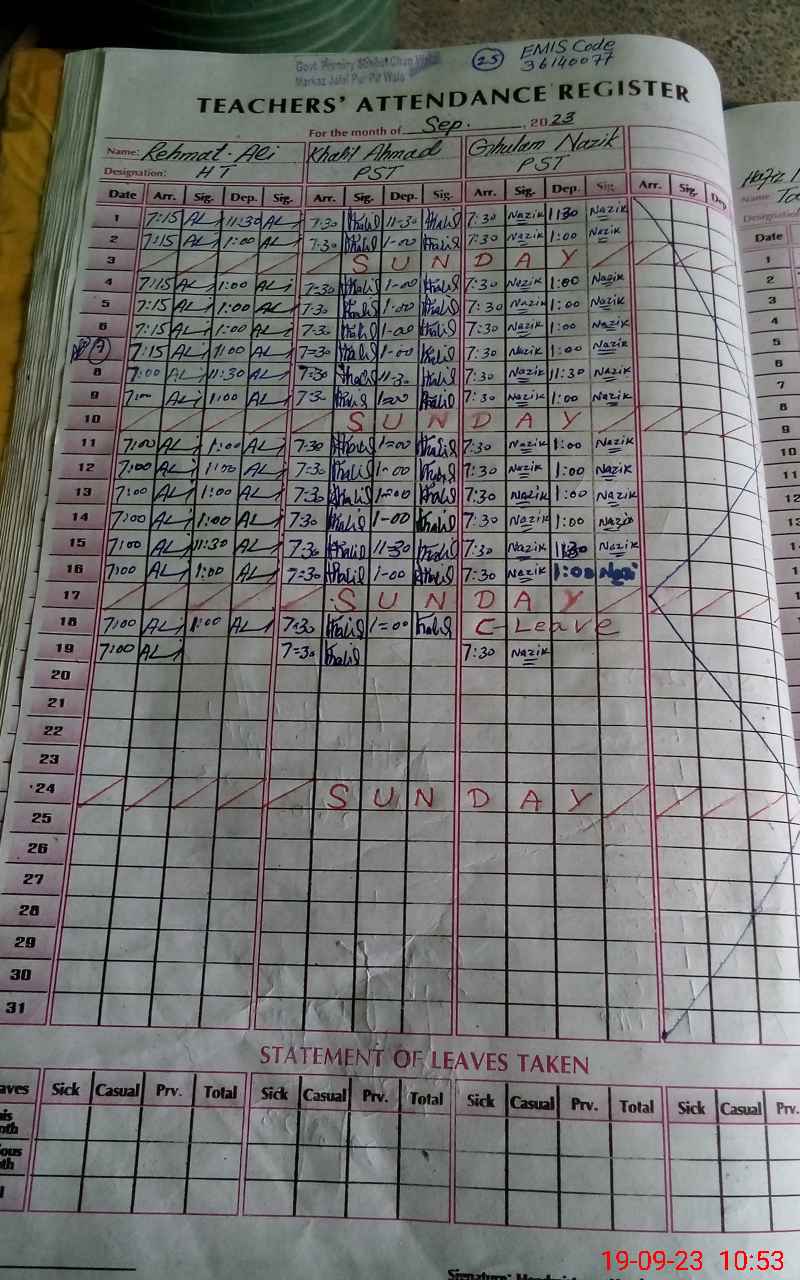 Govt. Primary School Chan
Markaz Jalal Pur Pir Wala
25 EMIS Code
36140077
TEACHERS' ATTENDANCE REGISTER
For the month of Sep. 2023
Name: Rehmat Ali Khalil Ahmad Ghulam Nazik
Designation: HT PST PST
Date Arr. Sig. Dep. Sig. Arr. Sig. Dep. Sig. Arr. Sig. Dep. Sig. Arr. Sig. Dep
1 7:15 ALi 11:30 ALi 7:30 Khalil 11-30 Khalil 7:30 Nazik 11:30 Nazik
2 7:15 ALi 1:00 ALi 7:30 Khalil 1-00 Khalil 7:30 Nazik 1:00 Nazik
3 SUNDAY
4 7:15 ALi 1:00 ALi 7=30 Khalil 1-00 Khalil 7:30 Nazik 1:00 Nazik
5 7:15 ALi 1:00 ALi 7:30 Khalil 1-00 Khalil 7:30 Nazik 1:00 Nazik
6 7:15 ALi 1:00 ALi 7:30 Khalil 1-00 Khalil 7:30 Nazik 1:00 Nazik
7 7:15 ALi 1:00 ALi 7=30 Khalil 1-00 Khalil 7:30 Nazik 1:00 Nazik
8 7:00 ALi 11:30 ALi 7=30 Khalil 11-30 Khalil 7:30 Nazik 11:30 Nazik
9 7:00 ALi 1:00 ALi 7:30 Khalil 1=00 Khalil 7:30 Nazik 1:00 Nazik
10 SUNDAY
11 7:00 ALi 1:00 ALi 7:30 Khalil 1=00 Khalil 7:30 Nazik 1:00 Nazik
12 7:00 ALi 1:00 ALi 7=30 Khalil 1-00 Khalil 7:30 Nazik 1:00 Nazik
13 7:00 ALi 1:00 ALi 7=30 Khalil 1=00 Khalil 7:30 Nazik 1:00 Nazik
14 7:00 ALi 1:00 ALi 7:30 Khalil 1-00 Khalil 7:30 Nazik 1:00 Nazik
15 7:00 ALi 11:30 ALi 7:30 Khalil 11=30 Khalil 7:30 Nazik 11:30 Nazik
16 7:00 ALi 1:00 ALi 7=30 Khalil 1-00 Khalil 7:30 Nazik 1:00 Nazi
17 SUNDAY
18 7:00 ALi 1:00 ALi 7:30 Khalil 1=00 Khalil C-Leave
19 7:00 ALi 7=30 Khalil 7:30 Nazik
20
21
22
23
24 SUNDAY
25
26
27
28
29
30
31
STATEMENT OF LEAVES TAKEN
aves Sick Casual Prv. Total Sick Casual Prv. Total Sick Casual Prv. Total Sick Casual Prv.
Hafiz
Name
Designation
Date
1
2
3
4
5
6
7
8
9
10
11
12
19-09-23 10:53